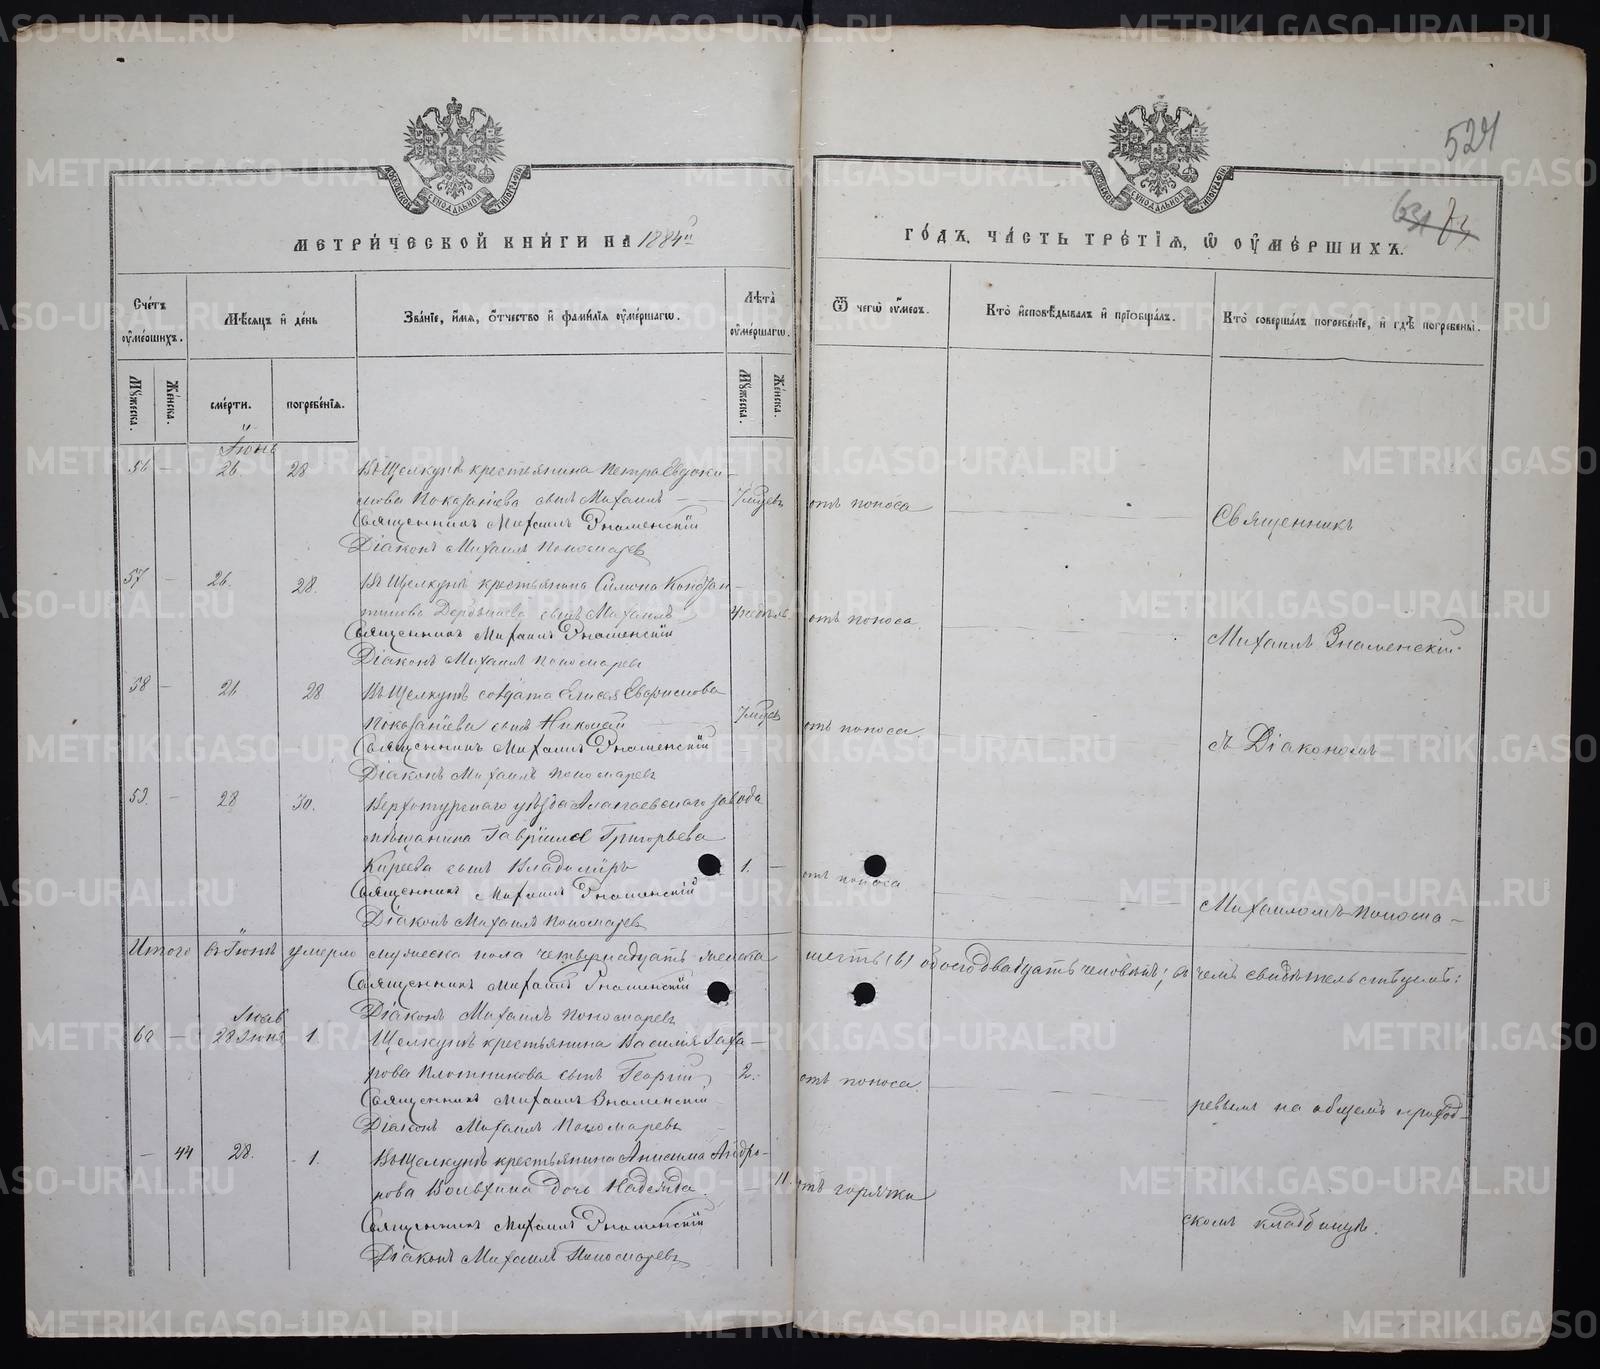 METRIKI.GASO-URAL.RU
524
МЕТРИ́ЧЕСКОЙ КНИ́ГИ НА 1884й
ГО́ДЪ, ЧА́СТЬ ТРЕ́ТІЯ, Ѿ ОУМЕ́РШИХЪ.
Счетъ оумершихъ.
Мѣсяцъ и день
Званіе, имя, отчество и фамилія оумершагѡ.
Лѣта оумершагѡ.
Ѿ чегѡ оумеръ.
Кто исповѣдывалъ и пріобщалъ.
Кто совершалъ погребеніе, и гдѣ погребены.
Мужеска.
Женска.
смерти.
погребенія.
Мужеска.
Женска.
Іюнь
56 – 26. 28 Въ Щелкунѣ крестьянина Петра Евдоки-
мова Показаніева сынъ Михаилъ 7 мцевъ отъ поноса Священникъ
Священникъ Михаилъ Знаменскій
Діаконъ Михаилъ Пономаревъ
57 – 26. 28. Въ Щелкунѣ крестьянина Симона Констан-
тинова сынъ Михаилъ недѣль отъ поноса Михаилъ Знаменскій
Священникъ Михаилъ Знаменскій
Діаконъ Михаилъ Пономаревъ
58 – 26 28 Въ Щелкунѣ солдата Елисея
Показаніева сынъ Николай 7 мцев отъ поноса съ Діакономъ
Священникъ Михаилъ Знаменскій
Діаконъ Михаилъ Пономаревъ
59. – 28 30. Верхотурскаго уѣзда Алапаевскаго завода
мѣщанина Гавріила Григорьева
Киреева сынъ Владиміръ 1. – отъ поноса
Священникъ Михаилъ Знаменскій
Діаконъ Михаилъ Пономаревъ Михаиломъ Понома-
Итого въ Іюнѣ умерло мужеска пола четырнадцать женска шесть (6) обоего двадцать человѣкъ; въ чемъ свидѣтельствуемъ:
Священникъ Михаилъ Знаменскій
Діаконъ Михаилъ Пономаревъ
60 – 28 Іюня 1. Щелкунѣ крестьянина Василія Заха-
рова Плотникова сынъ Георгій 2. отъ поноса
Священникъ Михаилъ Знаменскій ревымъ на общемъ приход-
Діаконъ Михаилъ Пономаревъ
– 44 28. 1. Въ Щелкунѣ крестьянина Анисима Андро-
нова дочь Надежда. – 11. отъ горячки
Священникъ Михаилъ Знаменскій скомъ кладбищѣ.
Діаконъ Михаилъ Пономаревъ